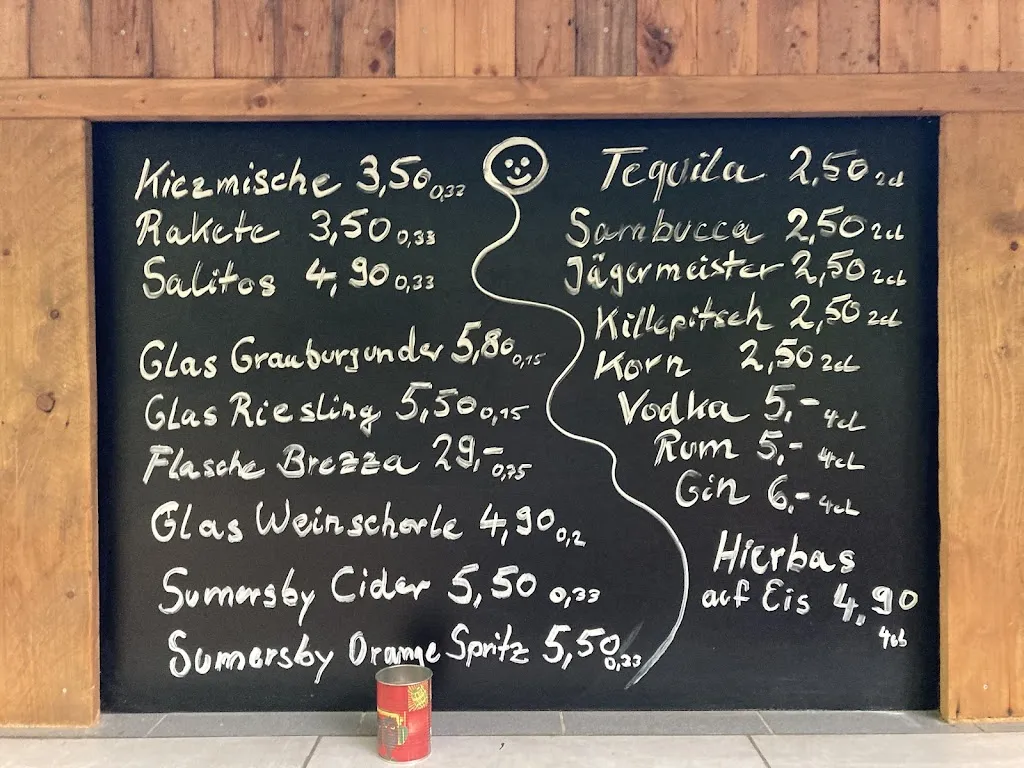 Kiezmische 3,50 0,33
Rakete 3,50 0,33
Salitos 4,90 0,33
Glas Grauburgunder 5,80 0,15
Glas Riesling 5,50 0,15
Flasche Brezza 29,- 0,75
Glas Weinschorle 4,90 0,2
Sumersby Cider 5,50 0,33
Sumersby Orange Spritz 5,50 0,33
Tequila 2,50 2cl
Sambucca 2,50 2cl
Jägermeister 2,50 2cl
Killepitsch 2,50 2cl
Korn 2,50 2cl
Vodka 5,- 4cl
Rum 5,- 4cl
Gin 6,- 4cl
Hierbas
auf Eis 4,90
4cl